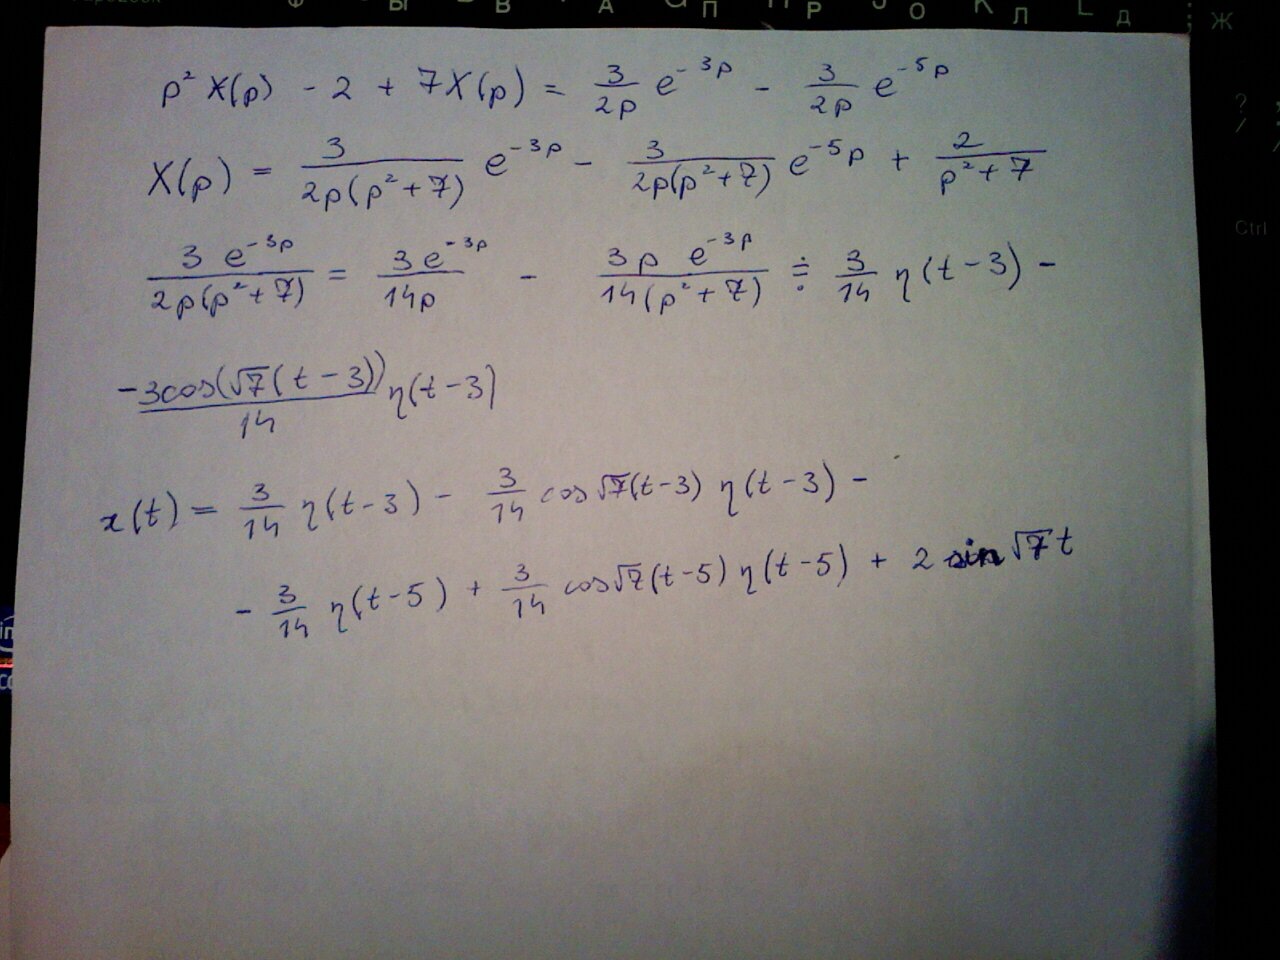 Ф Ы В А П Р О Л Д Ж
p² X(p) - 2 + 7X(p) = 3/2p e^-3p - 3/2p e^-5p
X(p) = 3/2p(p²+7) e^-3p - 3/2p(p²+7) e^-5p + 2/p²+7
3 e^-3p/2p(p²+7) = 3e^-3p/14p - 3p e^-3p/14(p²+7) ÷ 3/14 η(t-3) -
-3cos(√7(t-3))/14 η(t-3)
x(t) = 3/14 η(t-3) - 3/14 cos√7(t-3) η(t-3) -
- 3/14 η(t-5) + 3/14 cos√7(t-5) η(t-5) + 2 sin√7t
?
/
Ctrl